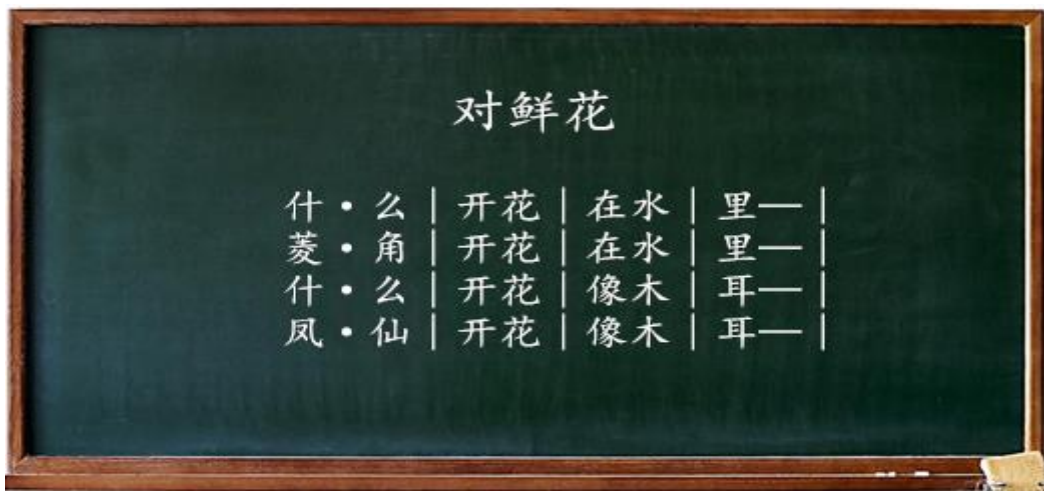 对鲜花
什·么|开花|在水|里—|
菱·角|开花|在水|里—|
什·么|开花|像木|耳—|
凤·仙|开花|像木|耳—|